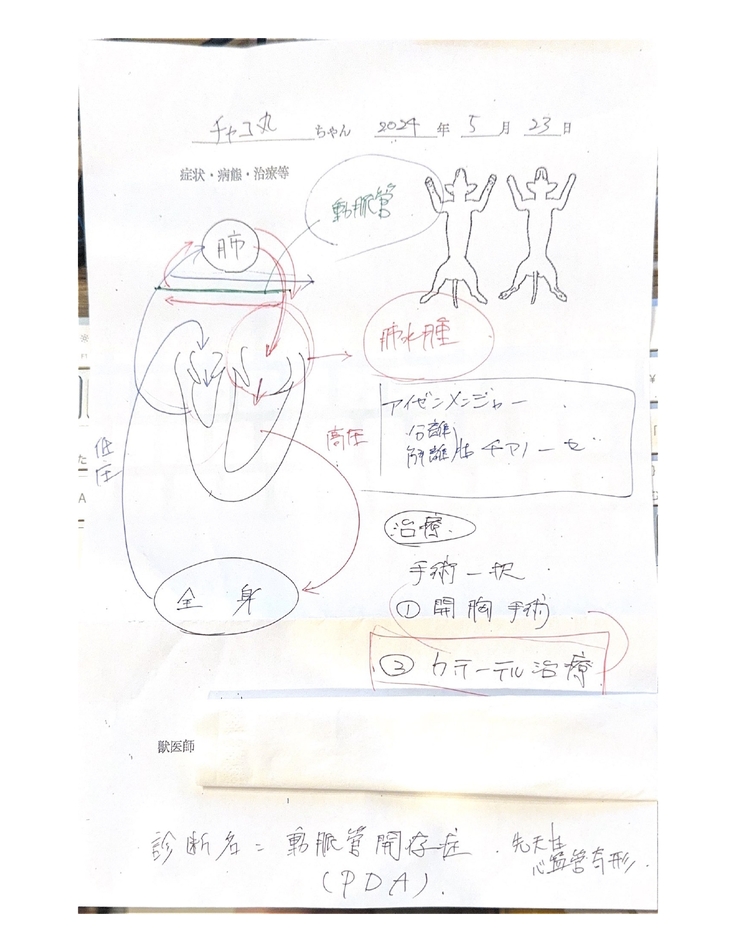 チャコ丸 ちゃん 2024 年 5 月 23 日
症状・病態・治療等
動脈管
肺
肺水腫
アイゼンメンジャー
分離
解離性チアノーゼ
高圧
低圧
治療
手術一択
① 開胸手術
全身
② カテーテル治療
獣医師
診断名: 動脈管開存症. 先天性
心血管奇形.
(PDA).